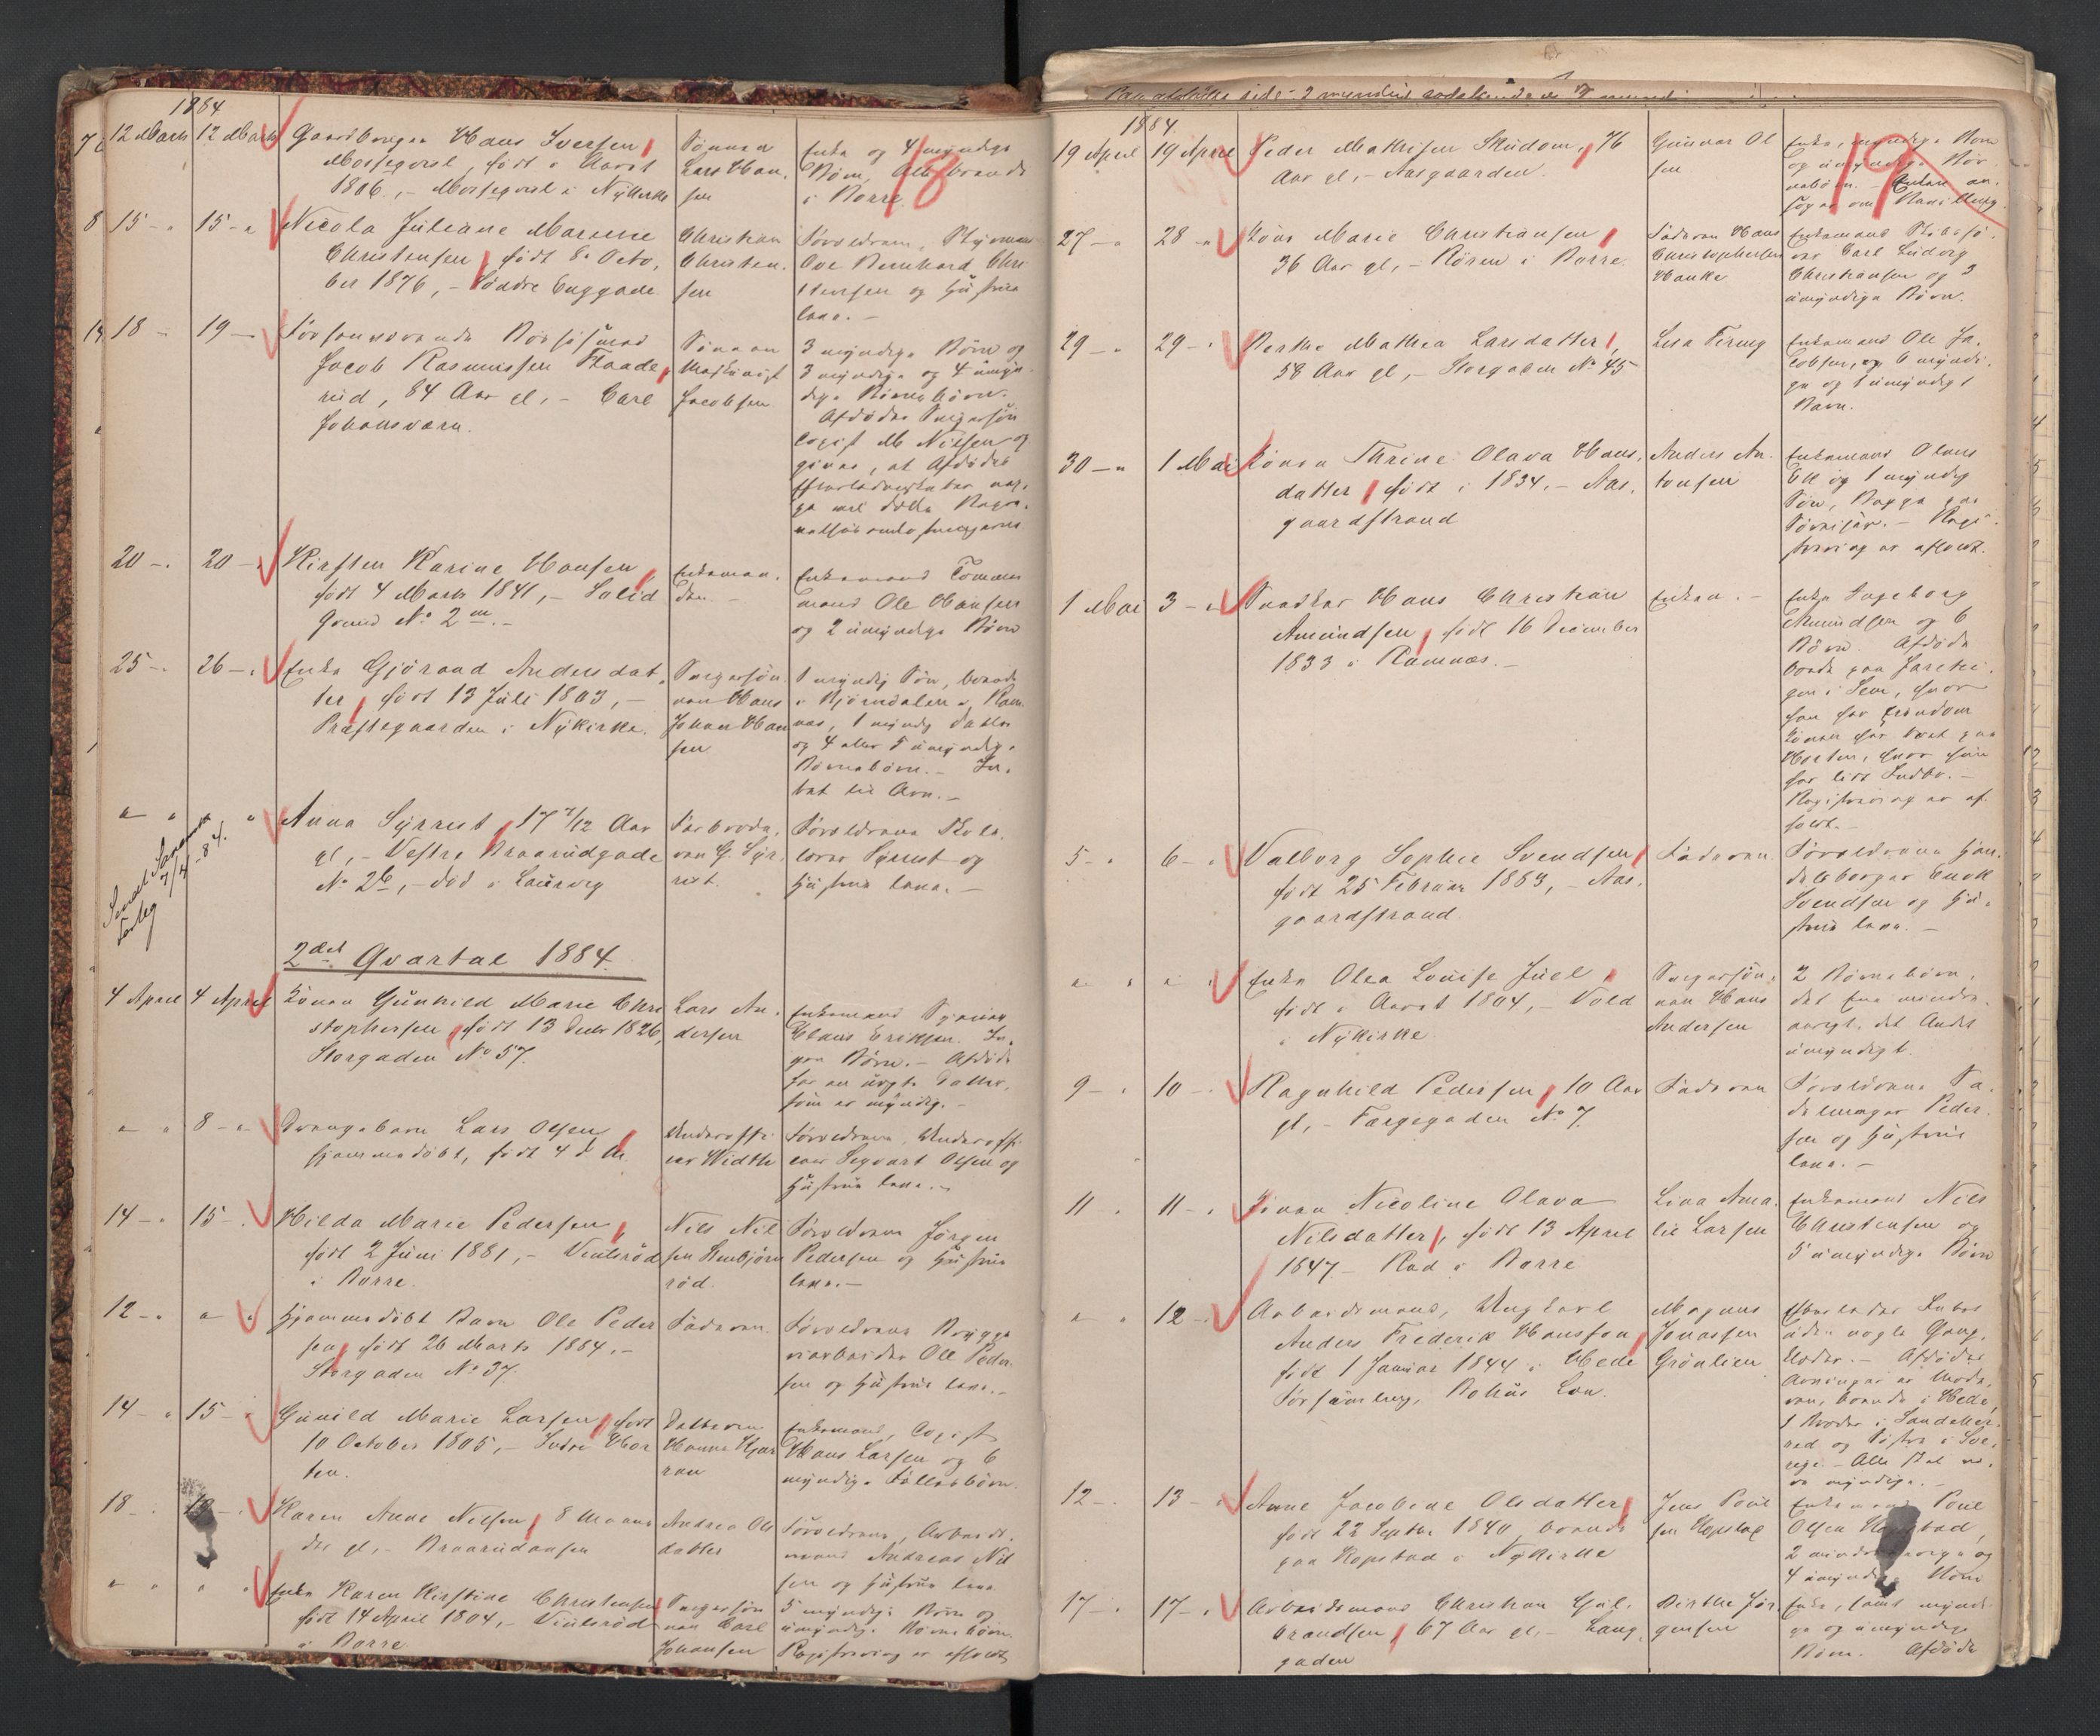 1884
12 Marts 12 Marts Gaardbruger Hans Iversen
født i Aaret
1806, – i Nykirke
Sønnen
Lars Han,
sen
Enke og 4 myndige
Børn, Alle boende
i Borre.
18
8 15 – " 15 – " Nicola Juliane Marie
Christensen, født 8. Octo,
ber 1876, – Søndre Enggade
Christian
Christen,
sen
Forældrene, Styrmand
Ove Bernhard Chri
stensen og Hustru
leve. –
18 – 19 –
Jacob Rasmussen
rud, 84 Aar gl, – Carl
Johansværn.
Sønnen
Jacobsen
3 myndige Børn og
3 myndige og 4 umyn
dige Børnebørn.
Afdødes Svigersøn
Logist M Nilsen op
giver, at Afdødes
20 – . 20 – " Kirsten Karine Hansen
født 4 Marts 1841, – Solid
Grund No 2 –
Enkeman,
den. –
Enkemand Tømmer
mand Ole Hansen
og 2 umyndige Børn
25 – . 26 – . Enke Gjørand Andersdat,
ter, født 13 Juli 1803, –
Præstegaarden i Nykirke.
Svigersøn
nen Hans
Johan Han
sen
1 myndig Søn, boende
i Bjørndalen i Ram
næs, 1 myndig Datter
og 4 eller 5 umyndige
Børnebørn. –
" " " Anna Syrrist, 17 7/12 Aar
gl, – Vestre Braarudgade
No 26, – død i Laurvig
Farbrode,
ren G. Syr,
rist.
Forældrene Skole,
lærer Syrrist og
Hustru leve. –
7/4 – 84.
2det Qvartal 1884.
4 April 4 April Konen Gunhild Marie Chri
stophersen, født 13 Decbr 1826,
Storgaden No 57.
Lars An,
dersen
Enkemand
Claus Eriksen. In,
gen Børn. – Afdøde
har en uægte Datter,
som er myndig. –
" " 8 – " Drengebarn Lars Olsen
hjemmedøbt, født 4 d M.
Underoffi
cer Width
Forældrene, Underoffi
cer Sigvart Olsen og
Hustru leve. –
14 – . 15 – . Hilda Marie Pedersen,
født 2 Juni 1881, –
i Borre.
Nils Nil
sen
rød.
Forældrene Jørgen
Pedersen og Hustru
leve. –
12 – . " " Hjemmedøbt Barn Ole Peder
sen, født 26 Marts 1884. –
Storgaden No 37.
Faderen.
Forældrene Brygge
riarbeider Ole Peder
sen og Hustru leve. –
14 – " 15 – " Gunild Marie Larsen, født
10 October 1805, – Indre Hor
ten.
Datteren
Hanna
Enkemand, Logist
Hans Larsen og 6
myndige Fællesbørn.
18 – . – . Karen Anne Nilsen, 8 Maane
der gl, – Braarudaasen
Andrea Ols
datter
Forældrene, Arbeids,
mand Andreas Nil
sen og Hustru leve
" " " " Enke Karen Kirstine Christensen
født 14 April 1804, –
i Borre.
Svigersøn
nen Carl
Johansen
5 myndige Børn og
umyndige Børnebørn.
Registrering er afholdt
1884
19 April 19 April Peder Mathisen Skudom, 76
Aar gl, – Aasgaarden.
Gunnar Ol
sen
Enke, myndige Børn
og umyndige Bør
nebørn. – Enken an,
søger om Bevilling.
19
27 – " 28 – " Kone Marie Christiansen
36 Aar gl, – Røren i Borre
Faderen Hans
Christophersen
Hanke
Enkemand
Carl Ludvig
Christiansen og 3
umyndige Børn.
29 – " 29 – . Berthe Mathea Larsdatter,
58 Aar gl, – Storgaden No 45
Lisa Fering
Enkemand Ole Ja,
cobsen, og 6 myndi,
ge og 1 umyndigt
Barn.
30 – " 1 Mai Konen Thrine Olava Hans,
datter, født i 1834, – Aas,
gaardstrand
Anders An,
tonsen
Enkemand Olaus
Ell og 1 myndig
Søn, Begge paa
Søreise. – Regi,
strering er afholdt.
1 Mai 3 – . Snedker Hans Christian
Amundsen, født 16 December
1833 i Ramnæs. –
Enken. –
Enke Ingeborg
Amundsen og 6
Børn. Afdøde
boede paa Jarebei
gen i Sem, hvor
han har Eiendom
Konen har boet paa
Horten, hvor hun
har lidt Indbo. –
Registrering er af
holdt. –
5 – . 6 – . Valborg Sophie Svendsen,
født 25 Februar 1863, – Aas,
gaardstrand.
Faderen.
Forældrene Han,
delsborger Enok
Svendsen og Hu,
stru leve. –
" . " . Enke Olea Louise Juel,
født i Aaret 1804, – Vold
i Nykirke
Svigersøn,
nen Hans
Andersen
2 Børnebørn,
det Ene mindre,
aarigt, det Andet
umyndigt.
9 – . 10 – . Ragnhild Pedersen, 10 Aar
gl, – Færgegaden No 7.
Faderen
Forældrene Sa,
delmager Peder,
sen og Hustru
leve. –
11 – . 11 – . Konen Nicoline Olava
Nilsdatter, født 13 April
1847 – Rød i Borre
Lina Ama,
lie Larsen
Enkemand Nils
Christensen og
5 umyndige Børn
" . 12 – . Arbeidsmand, Ungkarl
Anders Frederik Hansson,
født 1 Januar 1844 i Hede
Forsamling, Bohus Len.
Magnus
Jonassen
Grønlien
Efterlader Intet
uden nogle Gang,
klæder. – Afdødes
Arvinger er Mode,
ren, boende i Hede,
1 Broder i Sandeher,
red og Søster i Sve,
rige. – Alle skal væ,
re myndige. –
12 – . 13 – . Anne Jacobine Olsdatter,
født 22 Septbr 1840, boende
paa Kopstad i Nykirke
Jens Poul
sen Kopstad
Enkemand Poul
Olsen Kopstad,
2 mindreaarige og
4 umyndige Børn
17 – . 17 – . Arbeidsmand Christian Gul,
brandsen, 67 Aar gl, – Lang,
gaden
Birthe Jør
gensen
Enke, samt myndi,
ge og umyndige
Børn. Afdøde